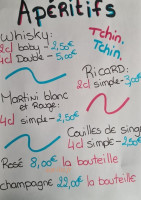 Apéritifs
Tchin,
Tchin.
Whisky:
2cl baby - 2,50€
4cl Double - 5,00€
Ricard:
2cl simple - 3,00€
Martini blanc
et Rouge:
4cl simple - 2,50€
Couilles de singe
4cl simple - 2,50€
Rosé 8,00€ la bouteille
champagne 22,00€ la bouteille